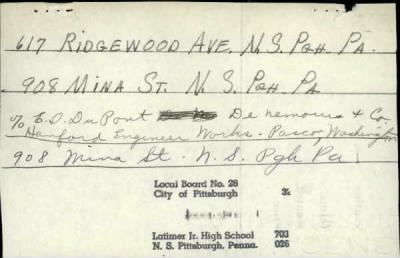 617 RIDGEWOOD AVE. N.S. PGH. PA.
908 MINA ST. N.S. PGH. PA
% E. I. DuPont De Nemours & Co.
Hanford Engineer Works - Pasco, Washington
908 Mina St. N.S. Pgh Pa
Local Board No. 26
City of Pittsburgh
Latimer Jr. High School 703
N. S. Pittsburgh, Penna. 026